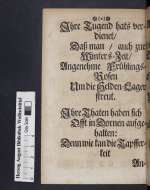 Ihre Tugend hats ver-
dienet/
Daß man / auch zur
Winters-Zeit/
Angenehme Frühlings-
Rosen
Um die Helden-Lager
streut.
Ihre Thaten haben sich
Offt in Dornen aufge-
halten:
Denn wie kan die Tapffer-
keit
An-
Herzog August Bibliothek Wolfenbüttel